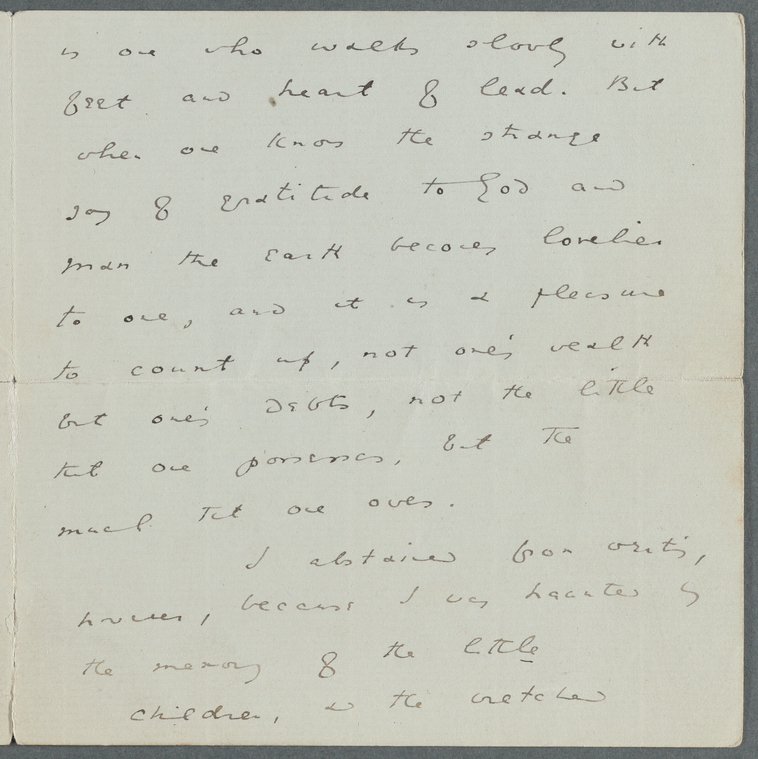 is one who walks slowly with
feet and heart of lead. But
when one knows the strange
joy of gratitude to God and
man the earth becomes lovelier
to one, and it is a pleasure
to count up, not one's wealth
but one's debts, not the little
that one possesses, but the
much that one owes.
I abstained from writing,
however, because I was haunted by
the memory of the little
children, and the wretched